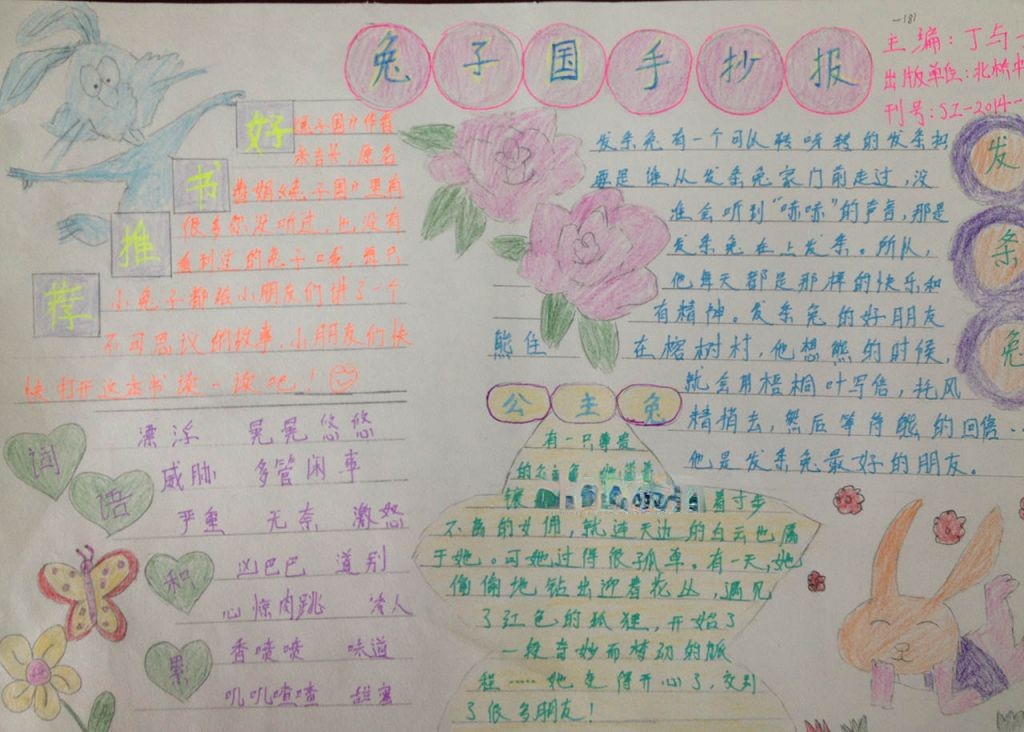 兔子国手抄报
主编:丁与一
出版单位:北桥中
刊号:SZ-2014-
好书推荐
兔子国》作者
米吉卡,原名
国》里有
很多你没听过,也没有
看到过的兔子口哦,每只
小兔子都给小朋友们讲了一个
不可思议的故事,小朋友们快
快打开这本书读一读吧!
发条兔
发条兔有一个可以转呀转的发条扣
要是谁从发条兔家门前走过,没
准会听到“哧哧”的声音,那是
发条兔在上发条。所以,
他每天都是那样的快乐和
有精神。发条兔的好朋友
熊住在榕树村,他想熊的时候,
就会用梧桐叶写信,托风
精捎去,然后等待熊的回信…
他是发条兔最好的朋友。
公主兔
有一只尊贵
的公主兔,她
镶 着寸步
不离的女佣,就连天边的白云也属
于她。可她过得很孤单。有一天,她
偷偷地钻出迎着花丛,遇见
了红色的狐狸,开始了
一段奇妙而
程……她变得开心了,交到
了很多朋友!
词语积累
漂浮 晃晃悠悠
威胁 多管闲事
严重 无奈 激怒
凶巴巴 道别
心惊肉跳 凌人
香喷喷 味道
叽叽喳喳 甜蜜